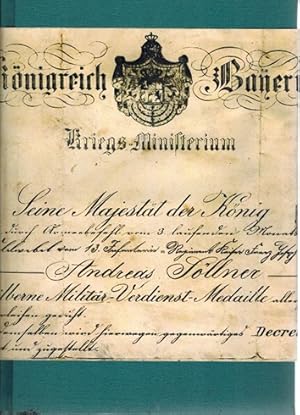 Königreich Bayern
Kriegs-Ministerium
Seine Majestät der König
durch Armeebefehl vom 3 laufenden Monats
vom 13. Infanterie-Regiment Kaiser Franz Joseph
Andreas Töllner
silberne Militär-Verdienst-Medaille aller
verleihen geruht.
demselben wird hierwegen gegenwärtiges Decre
und zugestellt.